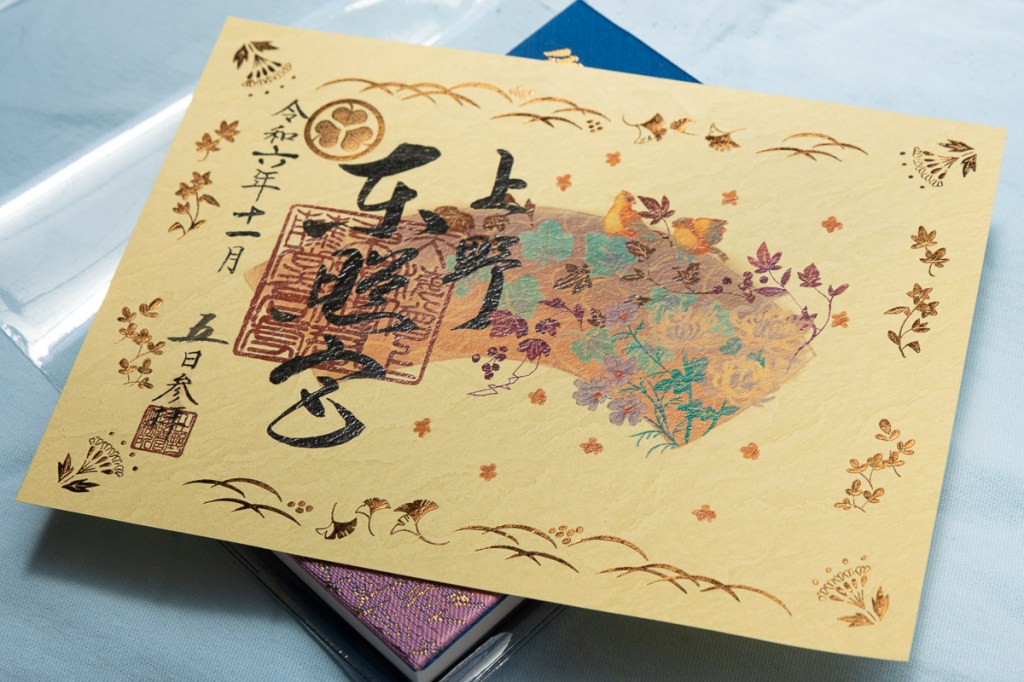 上野
東照宮
令和六年十一月
五日参拝